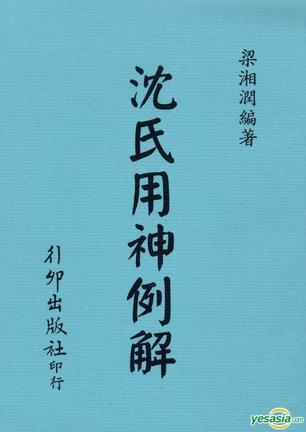 梁湘潤編著
沈氏用神例解
行卯出版社印行
yesasia.com